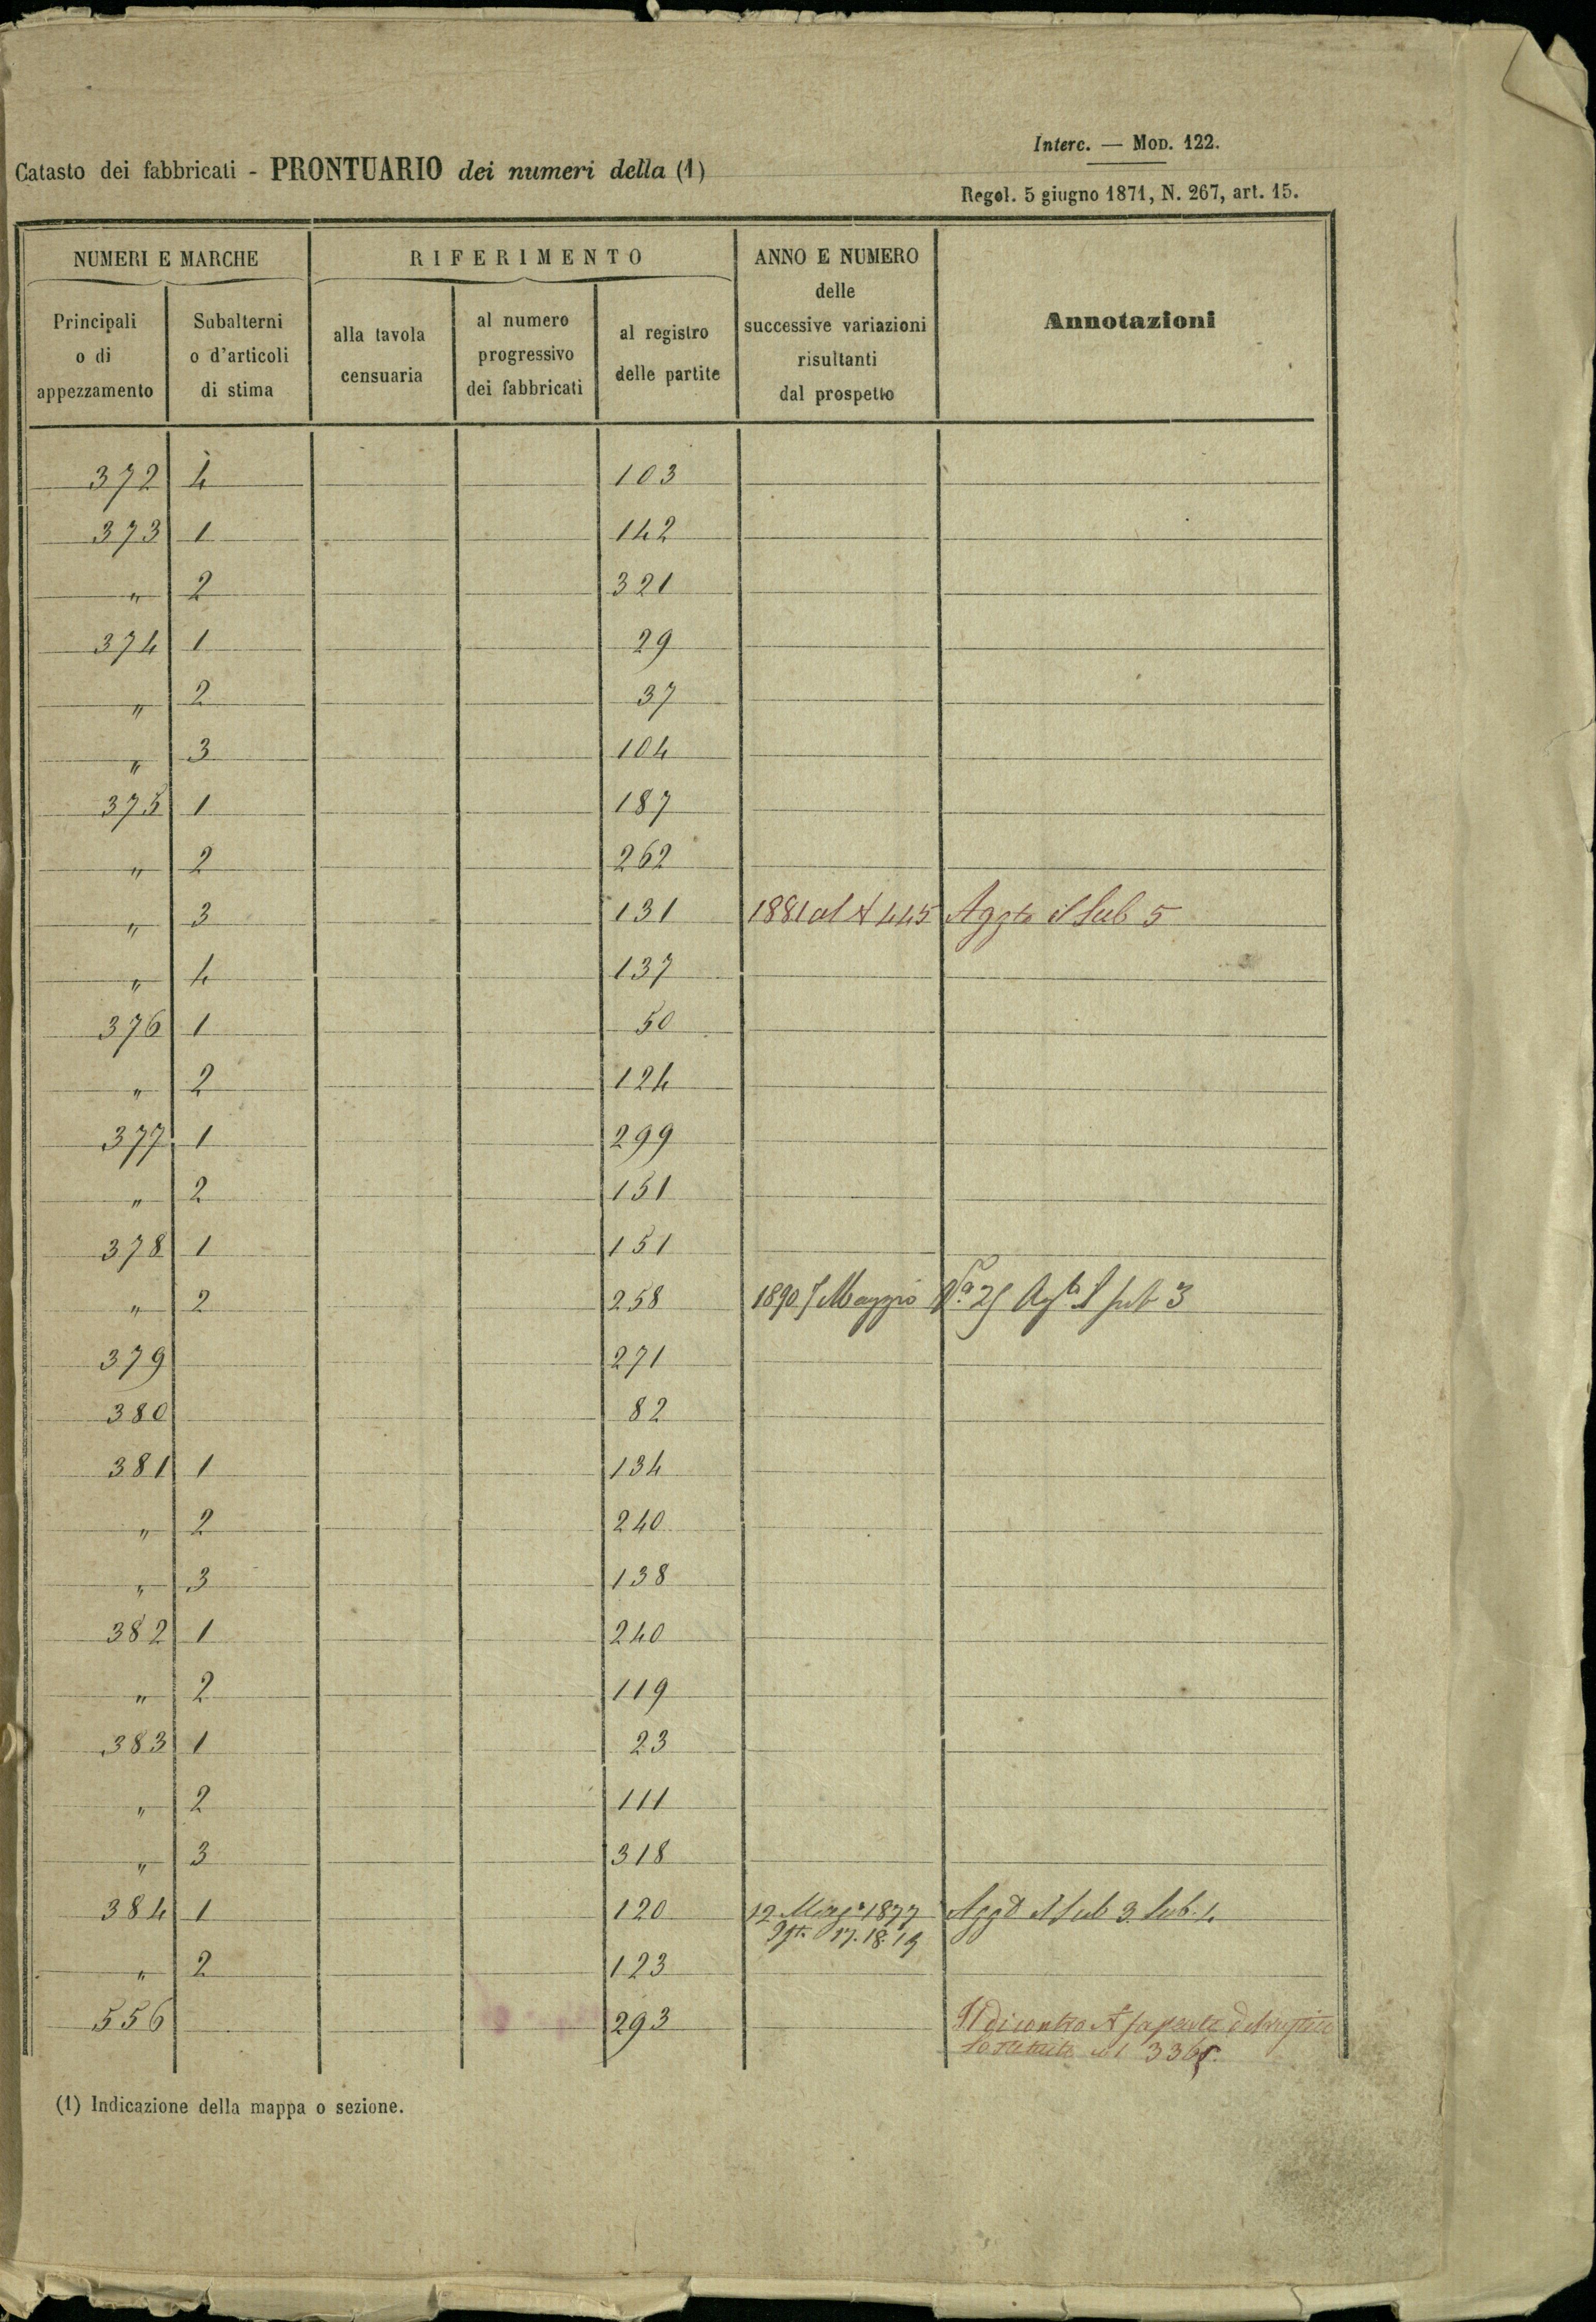 Interc. — MOD. 122.
Catasto dei fabbricati - PRONTUARIO dei numeri della (1)
Regol. 5 giugno 1871, N. 267, art. 15.
NUMERI E MARCHE
RIFERIMENTO
ANNO E NUMERO
delle
successive variazioni
risultanti
dal prospetto
Annotazioni
Principali
o di
appezzamento
Subalterni
o d'articoli
di stima
alla tavola
censuaria
al numero
progressivo
dei fabbricati
al registro
delle partite
372 4 103
373 1 142
" 2 321
374 1 29
" 2 37
" 3 104
375 1 187
" 2 262
" 3 131 1881 al N 445 Aggto il Sub 5
" 4 137
376 1 50
" 2 124
377 1 299
" 2 151
378 1 151
" 2 258 1890 Maggio il sub 3
379 271
380 82
381 1 134
" 2 240
" 3 138
382 1 240
" 2 119
383 1 23
" 2 111
" 3 318
384 1 120 12 Magº 1877 il sub 3. Sub. 4
17. 18. 19
" 2 123
556 293 Il di contro Nº fa parte
336
(1) Indicazione della mappa o sezione.